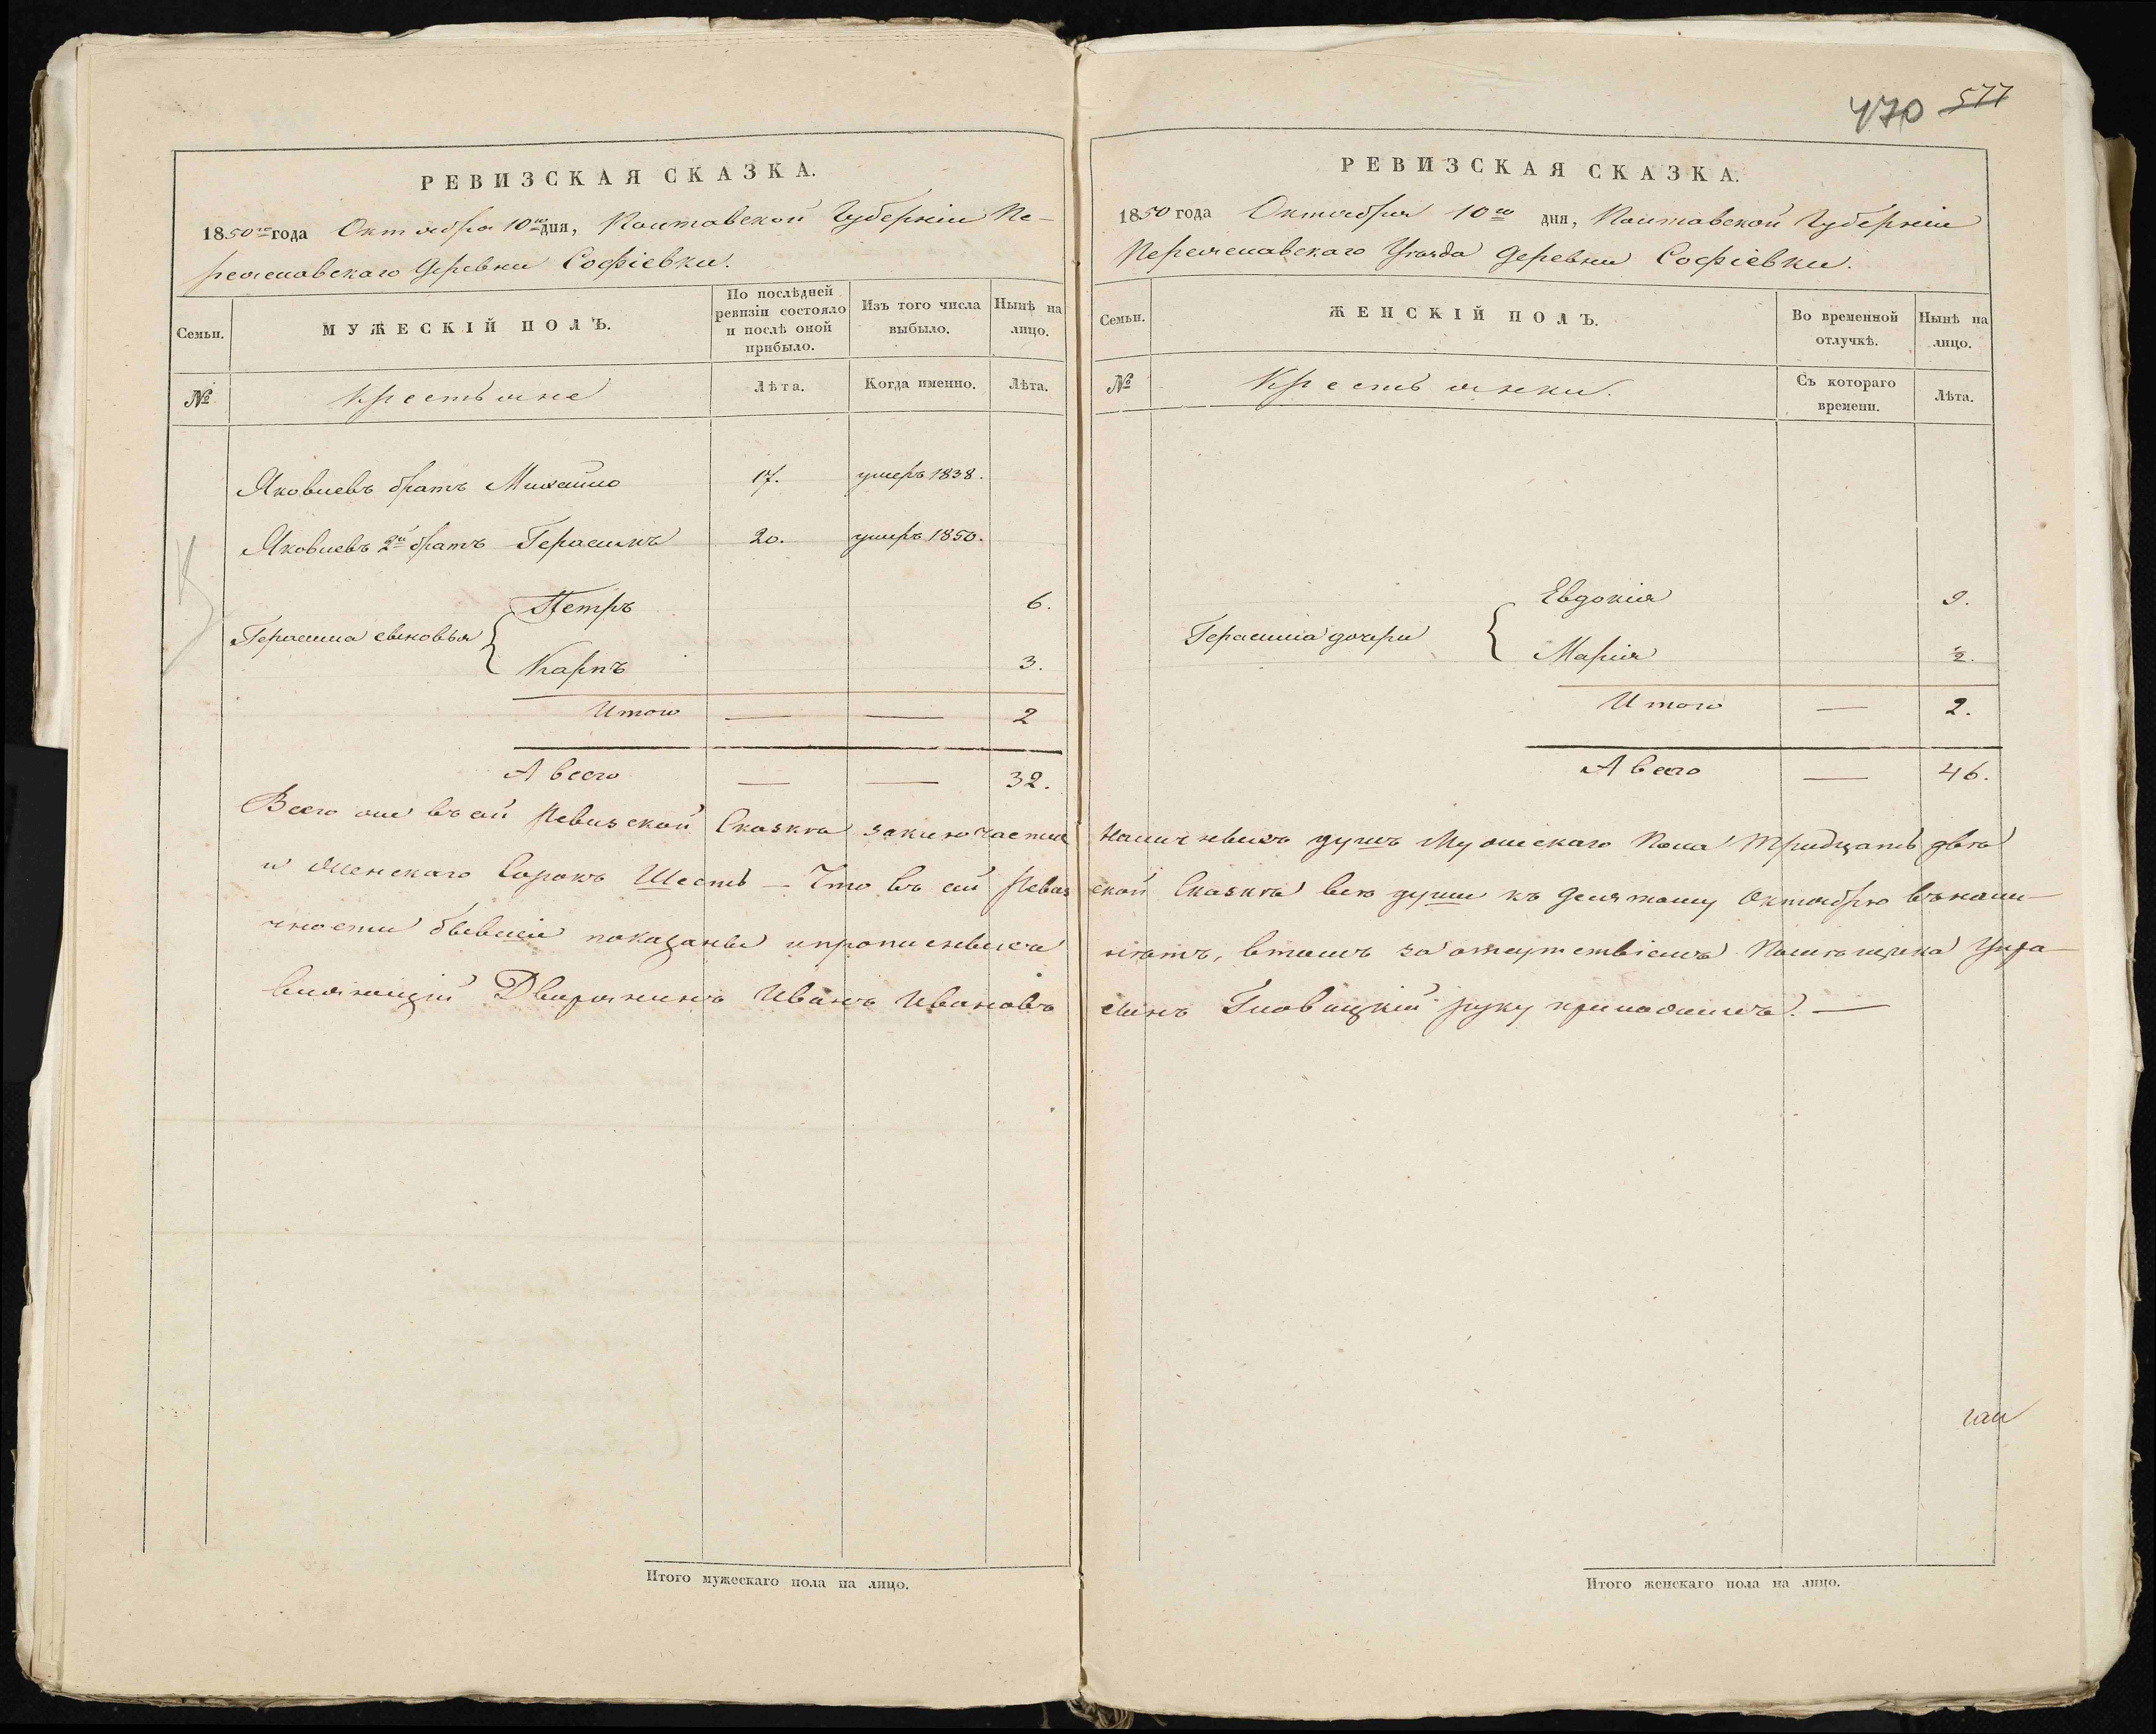 470 577
РЕВИЗСКАЯ СКАЗКА.
1850го года Октября 10го дня, Полтавской Губерніи Пе-
реяславскаго Деревни Софіевки.
Семьи.
МУЖЕСКІЙ ПОЛЪ.
По послѣдней
ревизіи состояло
и послѣ оной
прибыло.
Изъ того числа
выбыло.
Нынѣ на
лицо.
№
Крестьяне
Лѣта.
Когда именно.
Лѣта.
Яковлевъ братъ Михайло 17. умеръ 1838.
Яковлевъ 2й братъ Герасимъ 20. умеръ 1850.
Петръ 6.
Герасима сыновья
Карпъ 3.
Итого — — 2
А всего — — 32.
РЕВИЗСКАЯ СКАЗКА.
1850 года Октября 10го дня, Полтавской Губерніи
Переяславскаго Уѣзда Деревни Софіевки.
Семьи.
ЖЕНСКІЙ ПОЛЪ.
Во временной
отлучкѣ.
Нынѣ на
лицо.
№
Крестьянки.
Съ котораго
времени.
Лѣта.
Евдокія 9.
Герасима дочери
Марія ½.
Итого — 2.
А всего — 46.
Всего же въ сей Ревизской Сказкѣ заключается наличныхъ душъ Мужескаго Пола Тридцать двѣ
и Женскаго Сорокъ Шесть — Что въ сей Ревизской Сказкѣ всѣ души къ Десятому Октябрю въ нали-
чности бывшіе показаны и прописныхъ нѣтъ, въ томъ за отсутствіемъ Помѣщика Упра-
вляющій Дворянинъ Иванъ Ивановъ сынъ Гловацкій руку приложилъ. —
Итого мужескаго пола на лицо.
Итого женскаго пола на лицо.